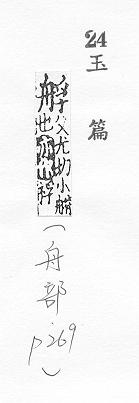 24
玉篇
艀父尤切小艒
舟也
(舟部 p269)